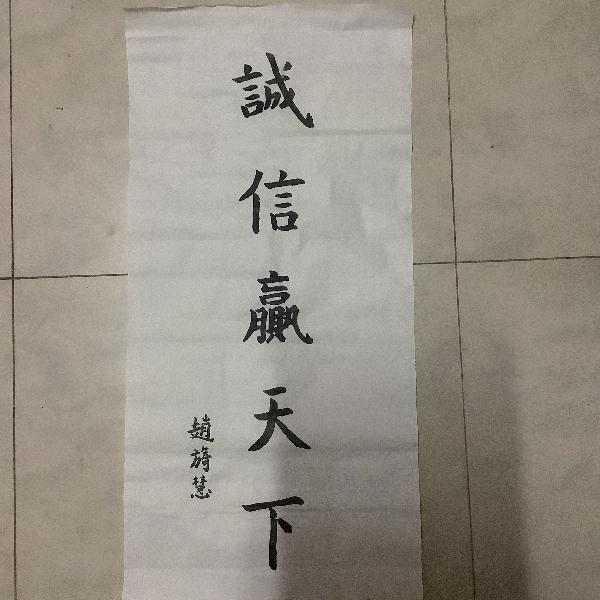 誠信贏天下
趙旖慧